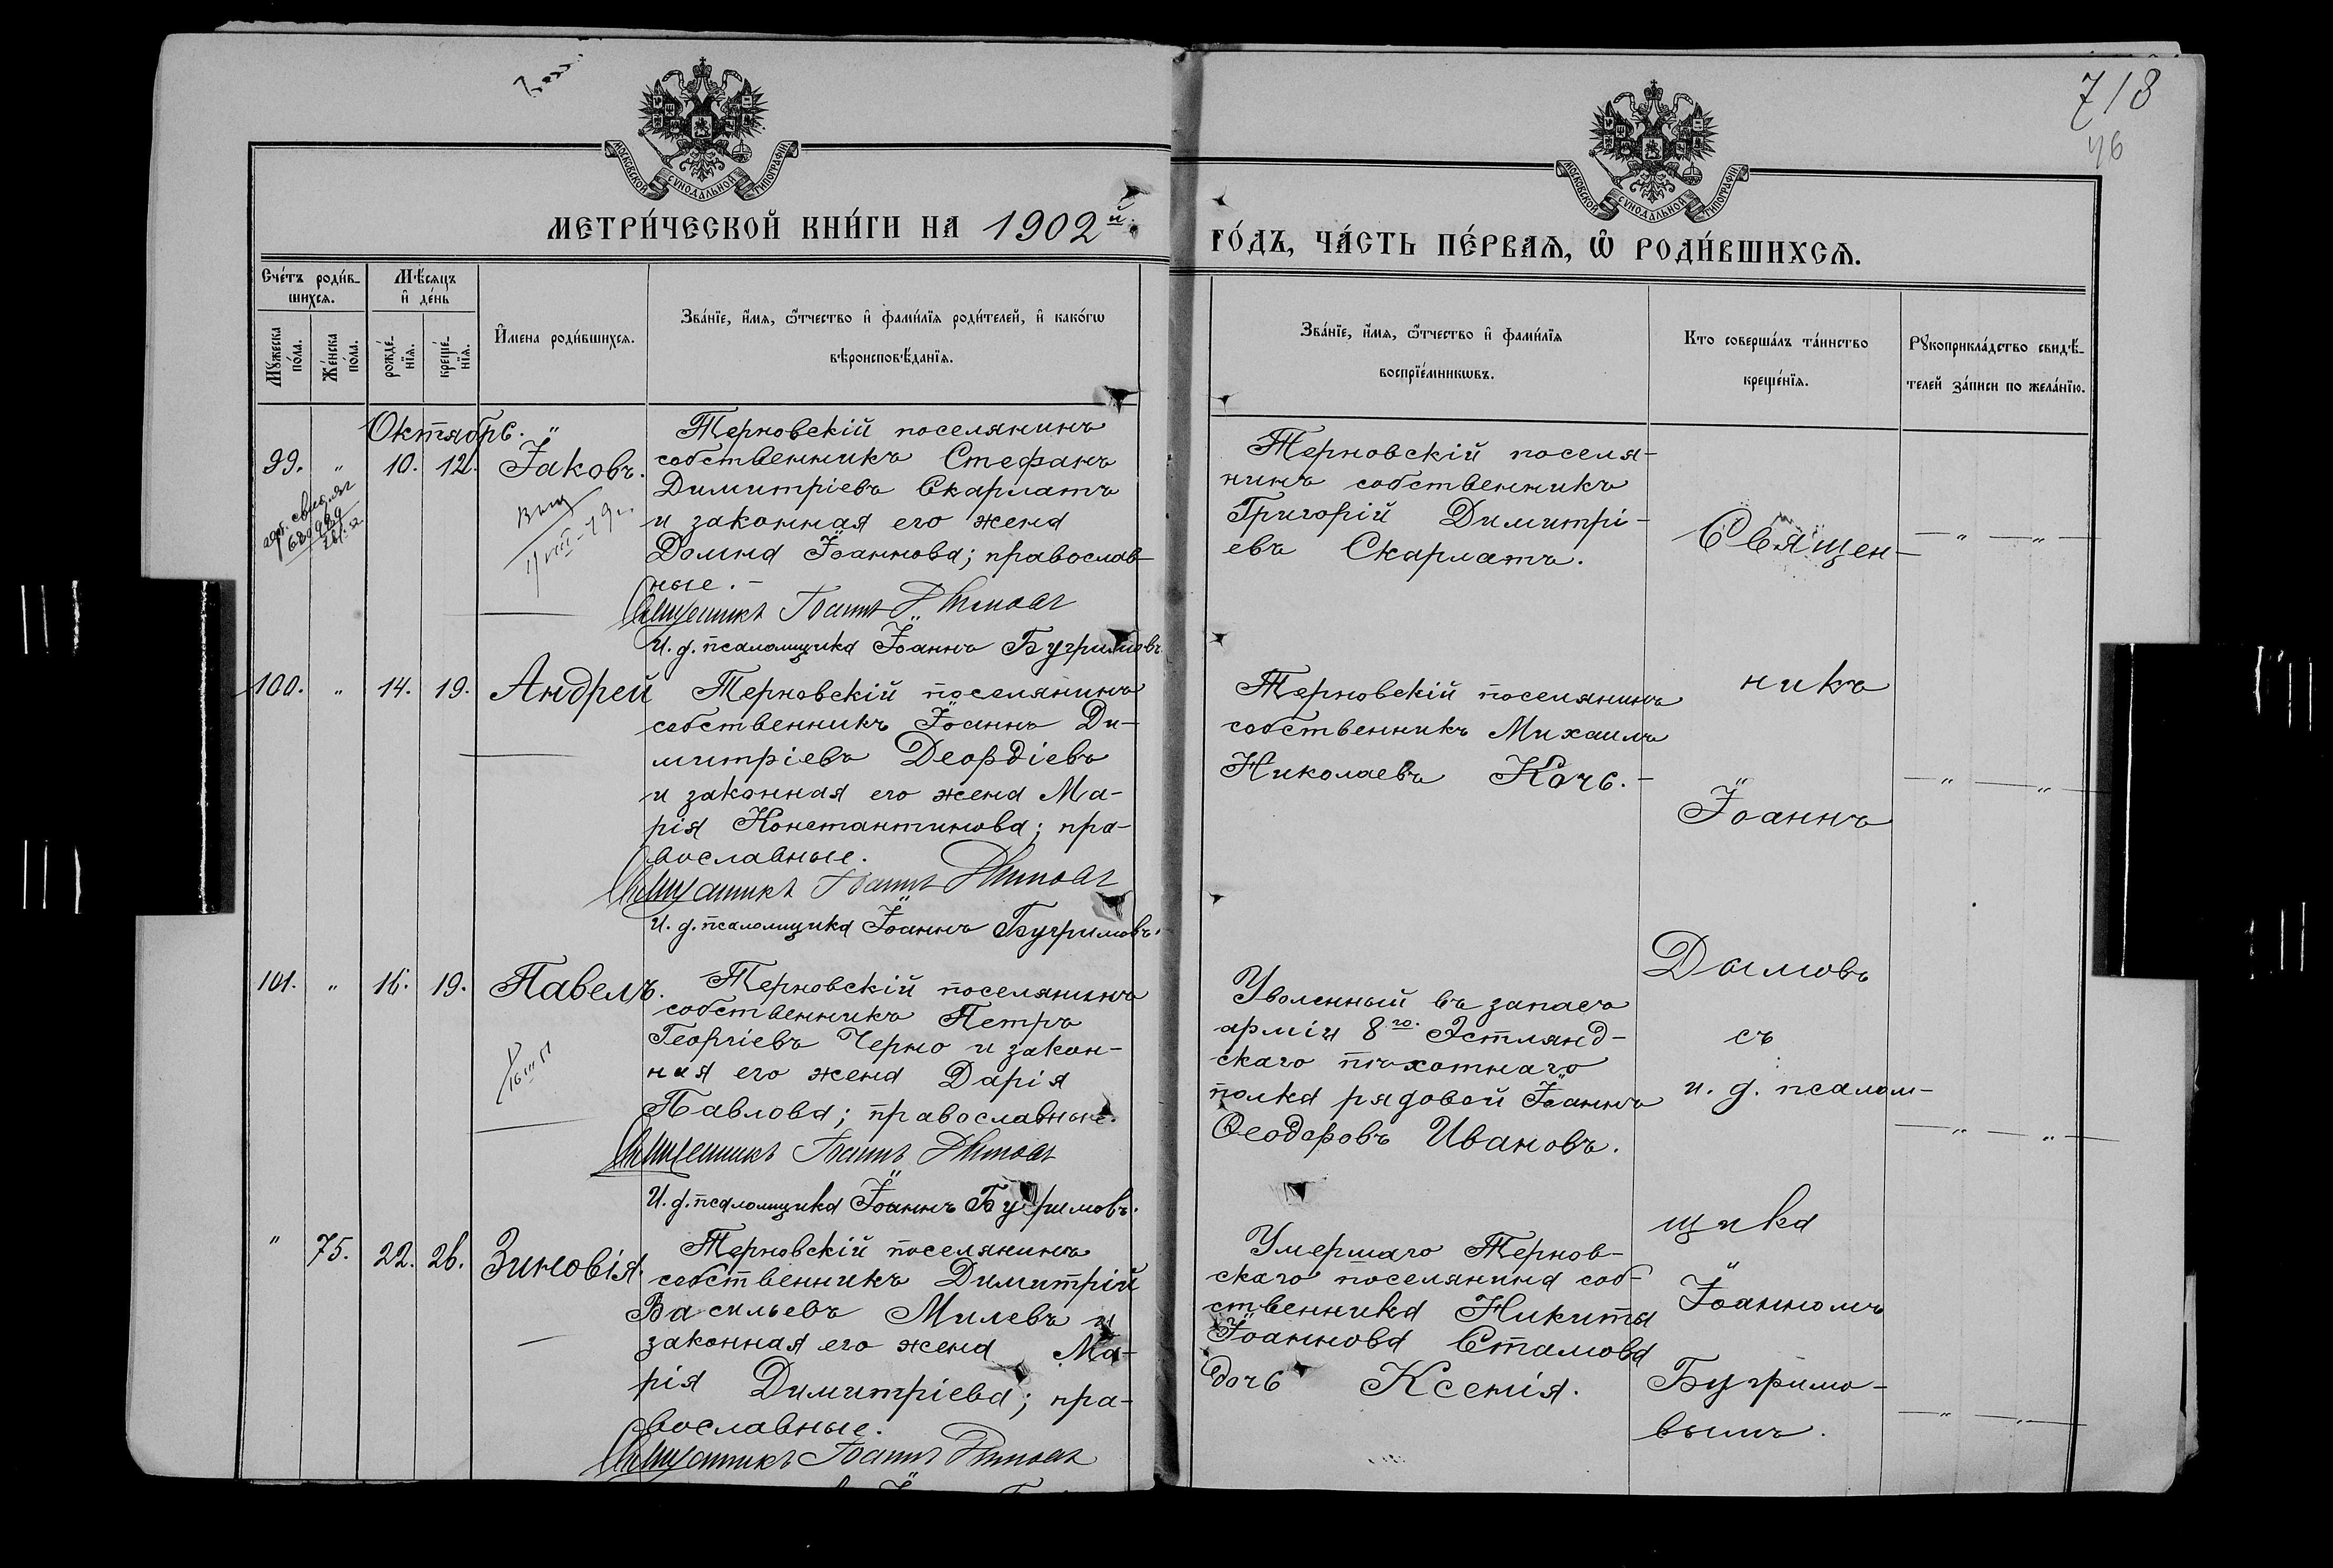 718
46
МОСКОВСКОЙ СѴНОДАЛЬНОЙ ТИПОГРАФІИ
МОСКОВСКОЙ СѴНОДАЛЬНОЙ ТИПОГРАФІИ
МЕТРИ́ЧЕСКОЙ КНИ́ГИ НА 1902й.
ГО́ДЪ, ЧА́СТЬ ПЕ́РВАѦ, Ѽ РОДИ́ВШИХСѦ.
Сче́тъ роди́в-
шихсѧ.
Мꙋ́жеска
по́ла.
Же́нска
по́ла.
Мѣ́сѧцъ
и҆ де́нь
рожде́-
нїѧ.
креще́-
нїѧ.
И҆мена роди́вшихсѧ.
Зва́нїе, и҆́мѧ, ѻ҆́тчество и҆ фами́лїѧ роди́телей, и҆ како́гѡ
вѣроисповѣ́данїѧ.
Зва́нїе, и҆́мѧ, ѻ҆́тчество и҆ фами́лїѧ
воспрїе́мникѡвъ.
Кто соверша́лъ та́инство
креще́нїѧ.
Рꙋкоприкла́дство свидѣ́-
телей за́писи по жела́нїю.
Октябрь.
99. " 10. 12. Іаковъ.
Терновскій поселянинъ
собственникъ Стефанъ
Димитріевъ Скарлатъ
и законная его жена
Домна Іоаннова; православ-
ные.
Священникъ Іоаннъ Дымовъ
И. д. псаломщика Іоаннъ Бугримовъ.
Терновскій поселя-
нинъ собственникъ
Григорій Димитрі-
евъ Скарлатъ.
100. " 14. 19. Андрей
Терновскій поселянинъ
собственникъ Іоаннъ Ди-
митріевъ Деордіевъ
и законная его жена Ма-
рія Константинова; пра-
вославные.
Священникъ Іоаннъ Дымовъ
И. д. псаломщика Іоаннъ Бугримовъ.
Терновскій поселянинъ
собственникъ Михаилъ
Николаевъ Кочь.
101. " 16. 19. Павелъ.
Терновскій поселянинъ
собственникъ Петръ
Георгіевъ Черно и закон-
ная его жена Дарія
Павлова; православные.
Священникъ Іоаннъ Дымовъ
И. д. псаломщика Іоаннъ Бугримовъ.
Уволенный въ запасъ
арміи 8го. Эстлянд-
скаго пѣхотнаго
полка рядовой Іоаннъ
Ѳеодоровъ Ивановъ.
" 75. 22. 26. Зиновія.
Терновскій поселянинъ
собственникъ Димитрій
Васильевъ Милевъ и
законная его жена Ма-
рія Димитріева; пра-
вославные.
Священникъ Іоаннъ Дымовъ
Умершаго Тернов-
скаго поселянина соб-
ственника Никита
Іоаннова Стамова
дочь Ксенія.
Священ-
никъ
Іоаннъ
Дымовъ
съ
и. д. псалом-
щика
Іоанномъ
Бугримо-
вымъ.